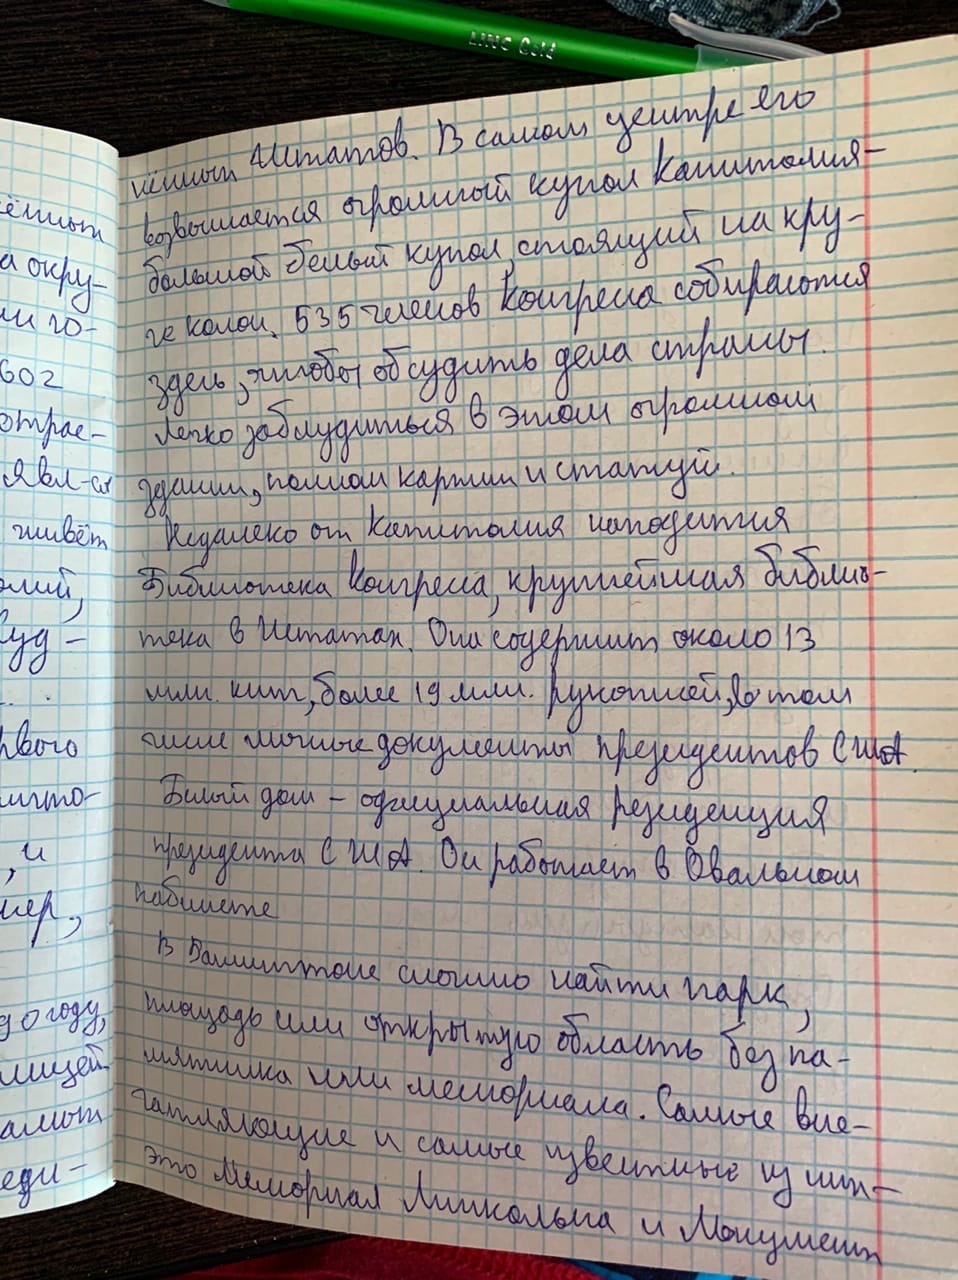 LINC Gold
нённых Штатов. В самом центре его
возвышается огромный купол Капитолия-
большой белый купол, стоящий на кру-
ге колон. 535 членов Конгресса собираются
здесь, чтобы обсудить дела страны.
Легко заблудиться в этом огромном
здании, полном картин и статуй.
Недалеко от Капитолия находится
Библиотека Конгресса, крупнейшая библио-
тека в Штатах. Она содержит около 13
млн. книг, более 19 млн. рукописей, в том
числе личные документы президентов США.
Белый дом - официальная резиденция
президента США. Он работает в Овальном
кабинете
В Вашингтоне сложно найти парк,
площадь или открытую область без па-
мятника или мемориала. Самые впе-
чатляющие и самые известные из них -
это Мемориал Линкольна и Монумент
ённых
а окру-
ли го-
602
отрас-
явл-ся
живёт
лий,
Суд -
. .
рвого
, и
нер,
до году,
лицей
еди-